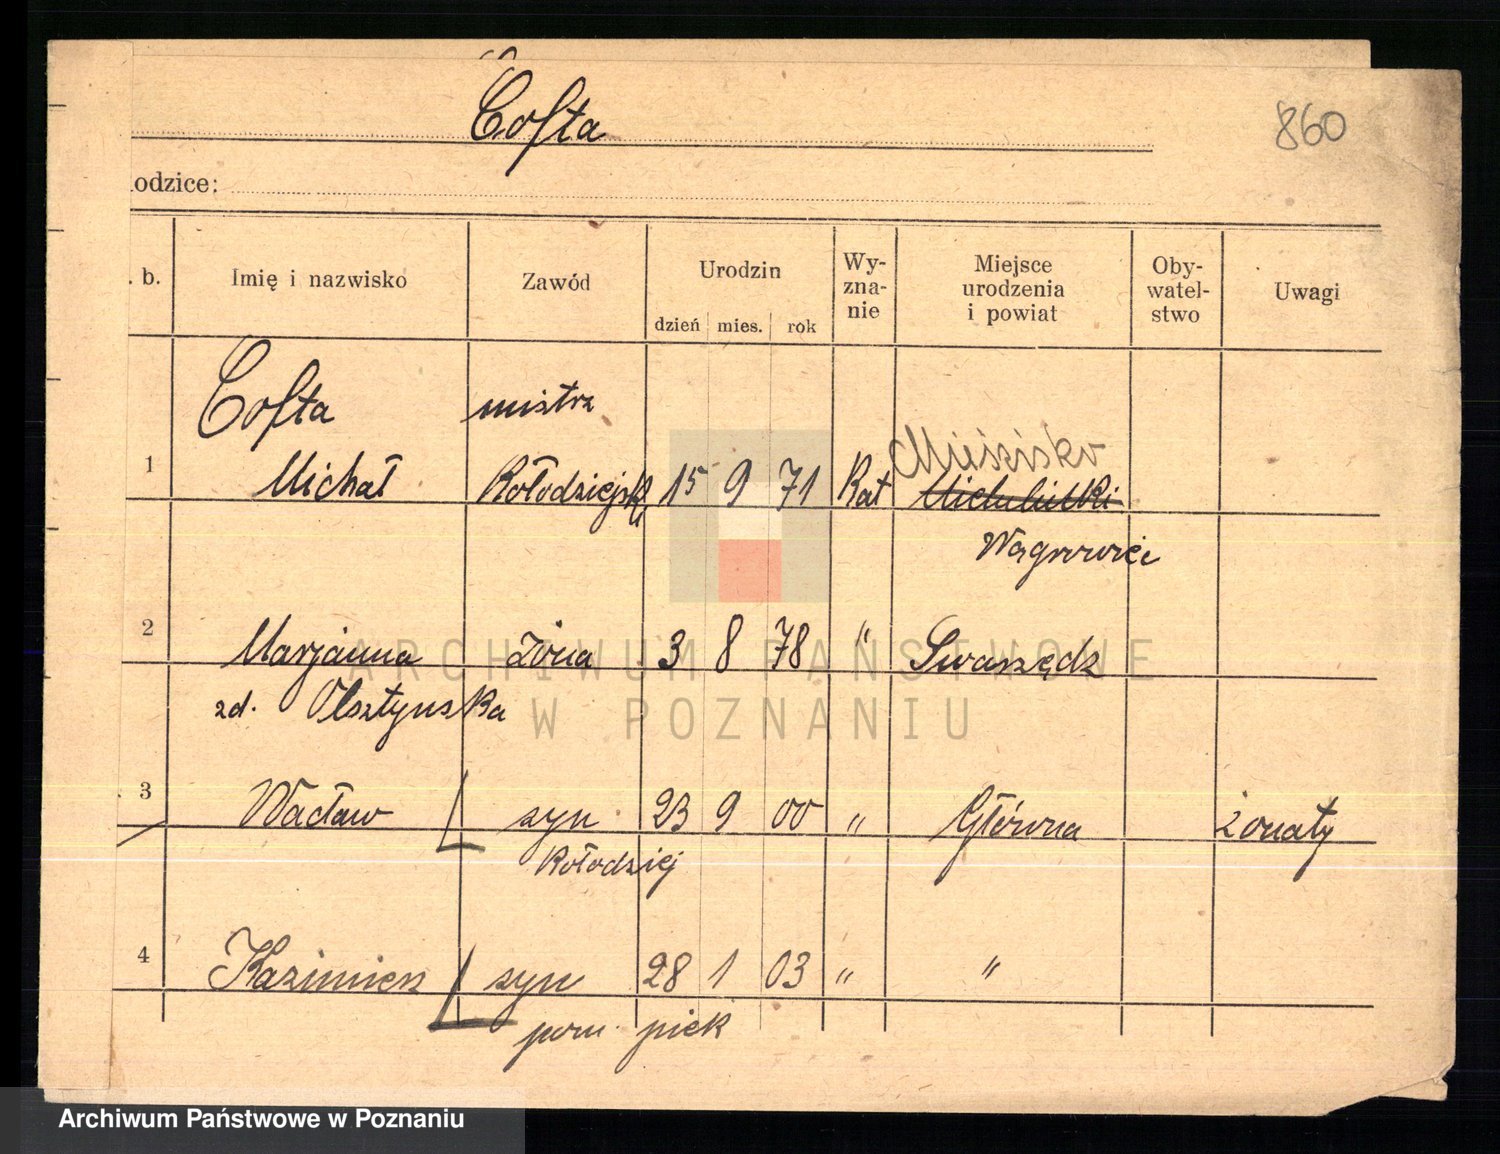 Cofta
860
odzice:
. b. Imię i nazwisko Zawód Urodzin Wy-zna-nie Miejsce urodzenia i powiat Oby-watel-stwo Uwagi
dzień mies. rok
Cofta mistrz Mieścisko
1 Michał Kołodziejski 15 9 71 Kat
Wągrowiec
2 Marjanna żona 3 8 78 " Swarzędz
zd. Olsztyńska
3 Wacław syn 23 9 00 " Główna żonaty
Kołodziej
4 Kazimierz syn 28 1 03 " "
pom. piek
ARCHIWUM PAŃSTWOWE
W POZNANIU
Archiwum Państwowe w Poznaniu